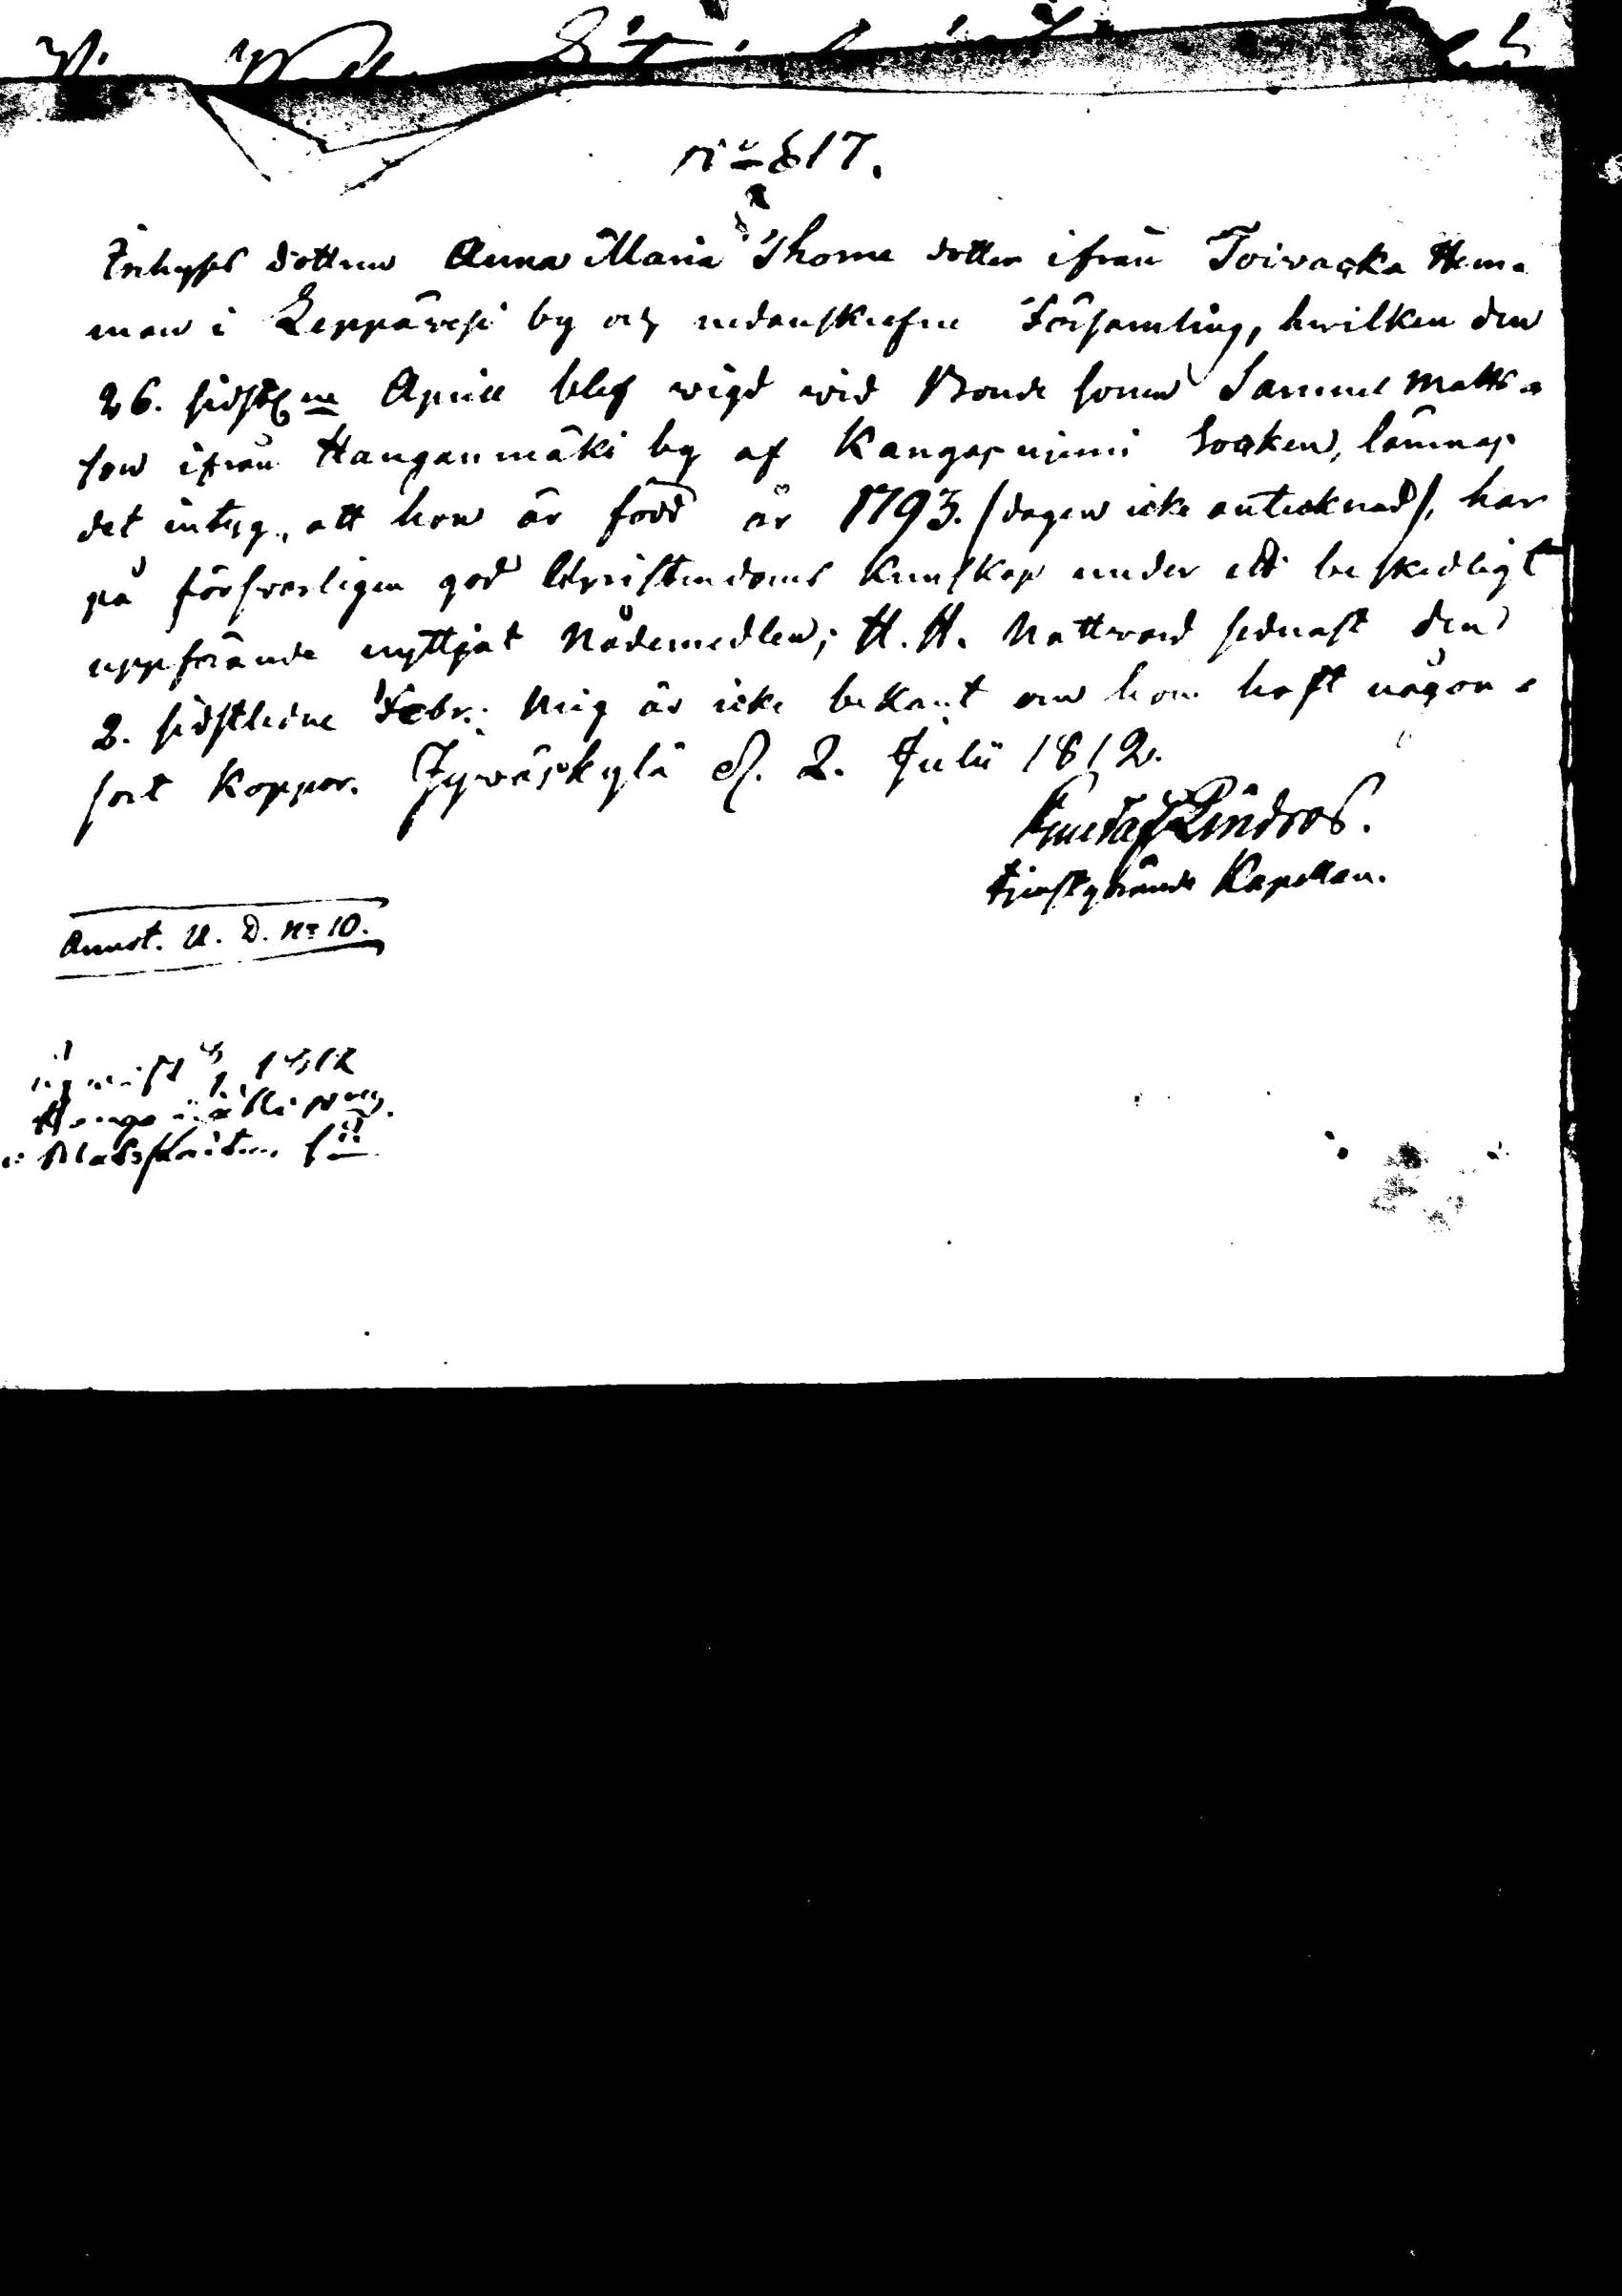 N:o 817.
Inhyses dottren Anna Maria Thome dotter ifrån Toivacka Hem-
man i Leppävesi by och nedanskrefne Församling, hwilken den
26. sidstl:ne Aprill blef wigd wid Bonde sonen Samuel Matts-
son ifrån Hanganmäki by af Kangasniemi Socken, lämnas
det intyg, att hon är född år 1793. /dagen icke antecknad/, har
på försvarligen god Christendoms Kunskap under ett beskedligt
uppförande nyttjat Nådemedlen; H. H. Nattvard sednast den
2. sidstledne Febr.; Mig är icke bekant om hon haft någon-
sort Koppor. Jywäskylä d. 2. Julii 1812.
Gustaf Lindroos.
tjenstgörande Kapellan.
Annot. U. D. N:o 10.
1812